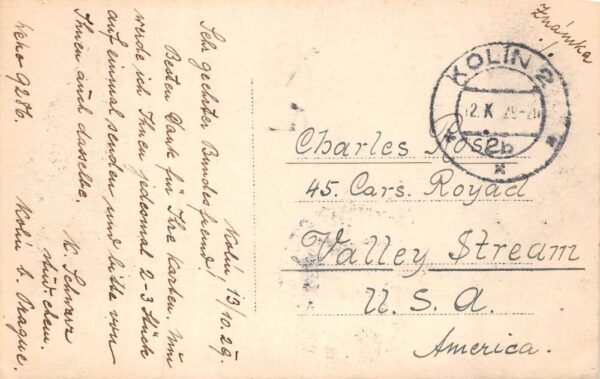 Kolín 13/10.29.
Sehr geehrter Bundesfreund!
Besten Dank für Ihre Karten. Nun
werde ich Ihnen jedesmal 2-3 Stück
auf einmal senden und bitte von
Ihnen auch dasselbe.
K. Schwarz
stud. chem.
Kolín b. Prague.
9286.
Známka
KOLÍN 2
12.X 29
2b
Charles Rosen
45. Cars. Royad
Valley Stream
U. S. A.
America.